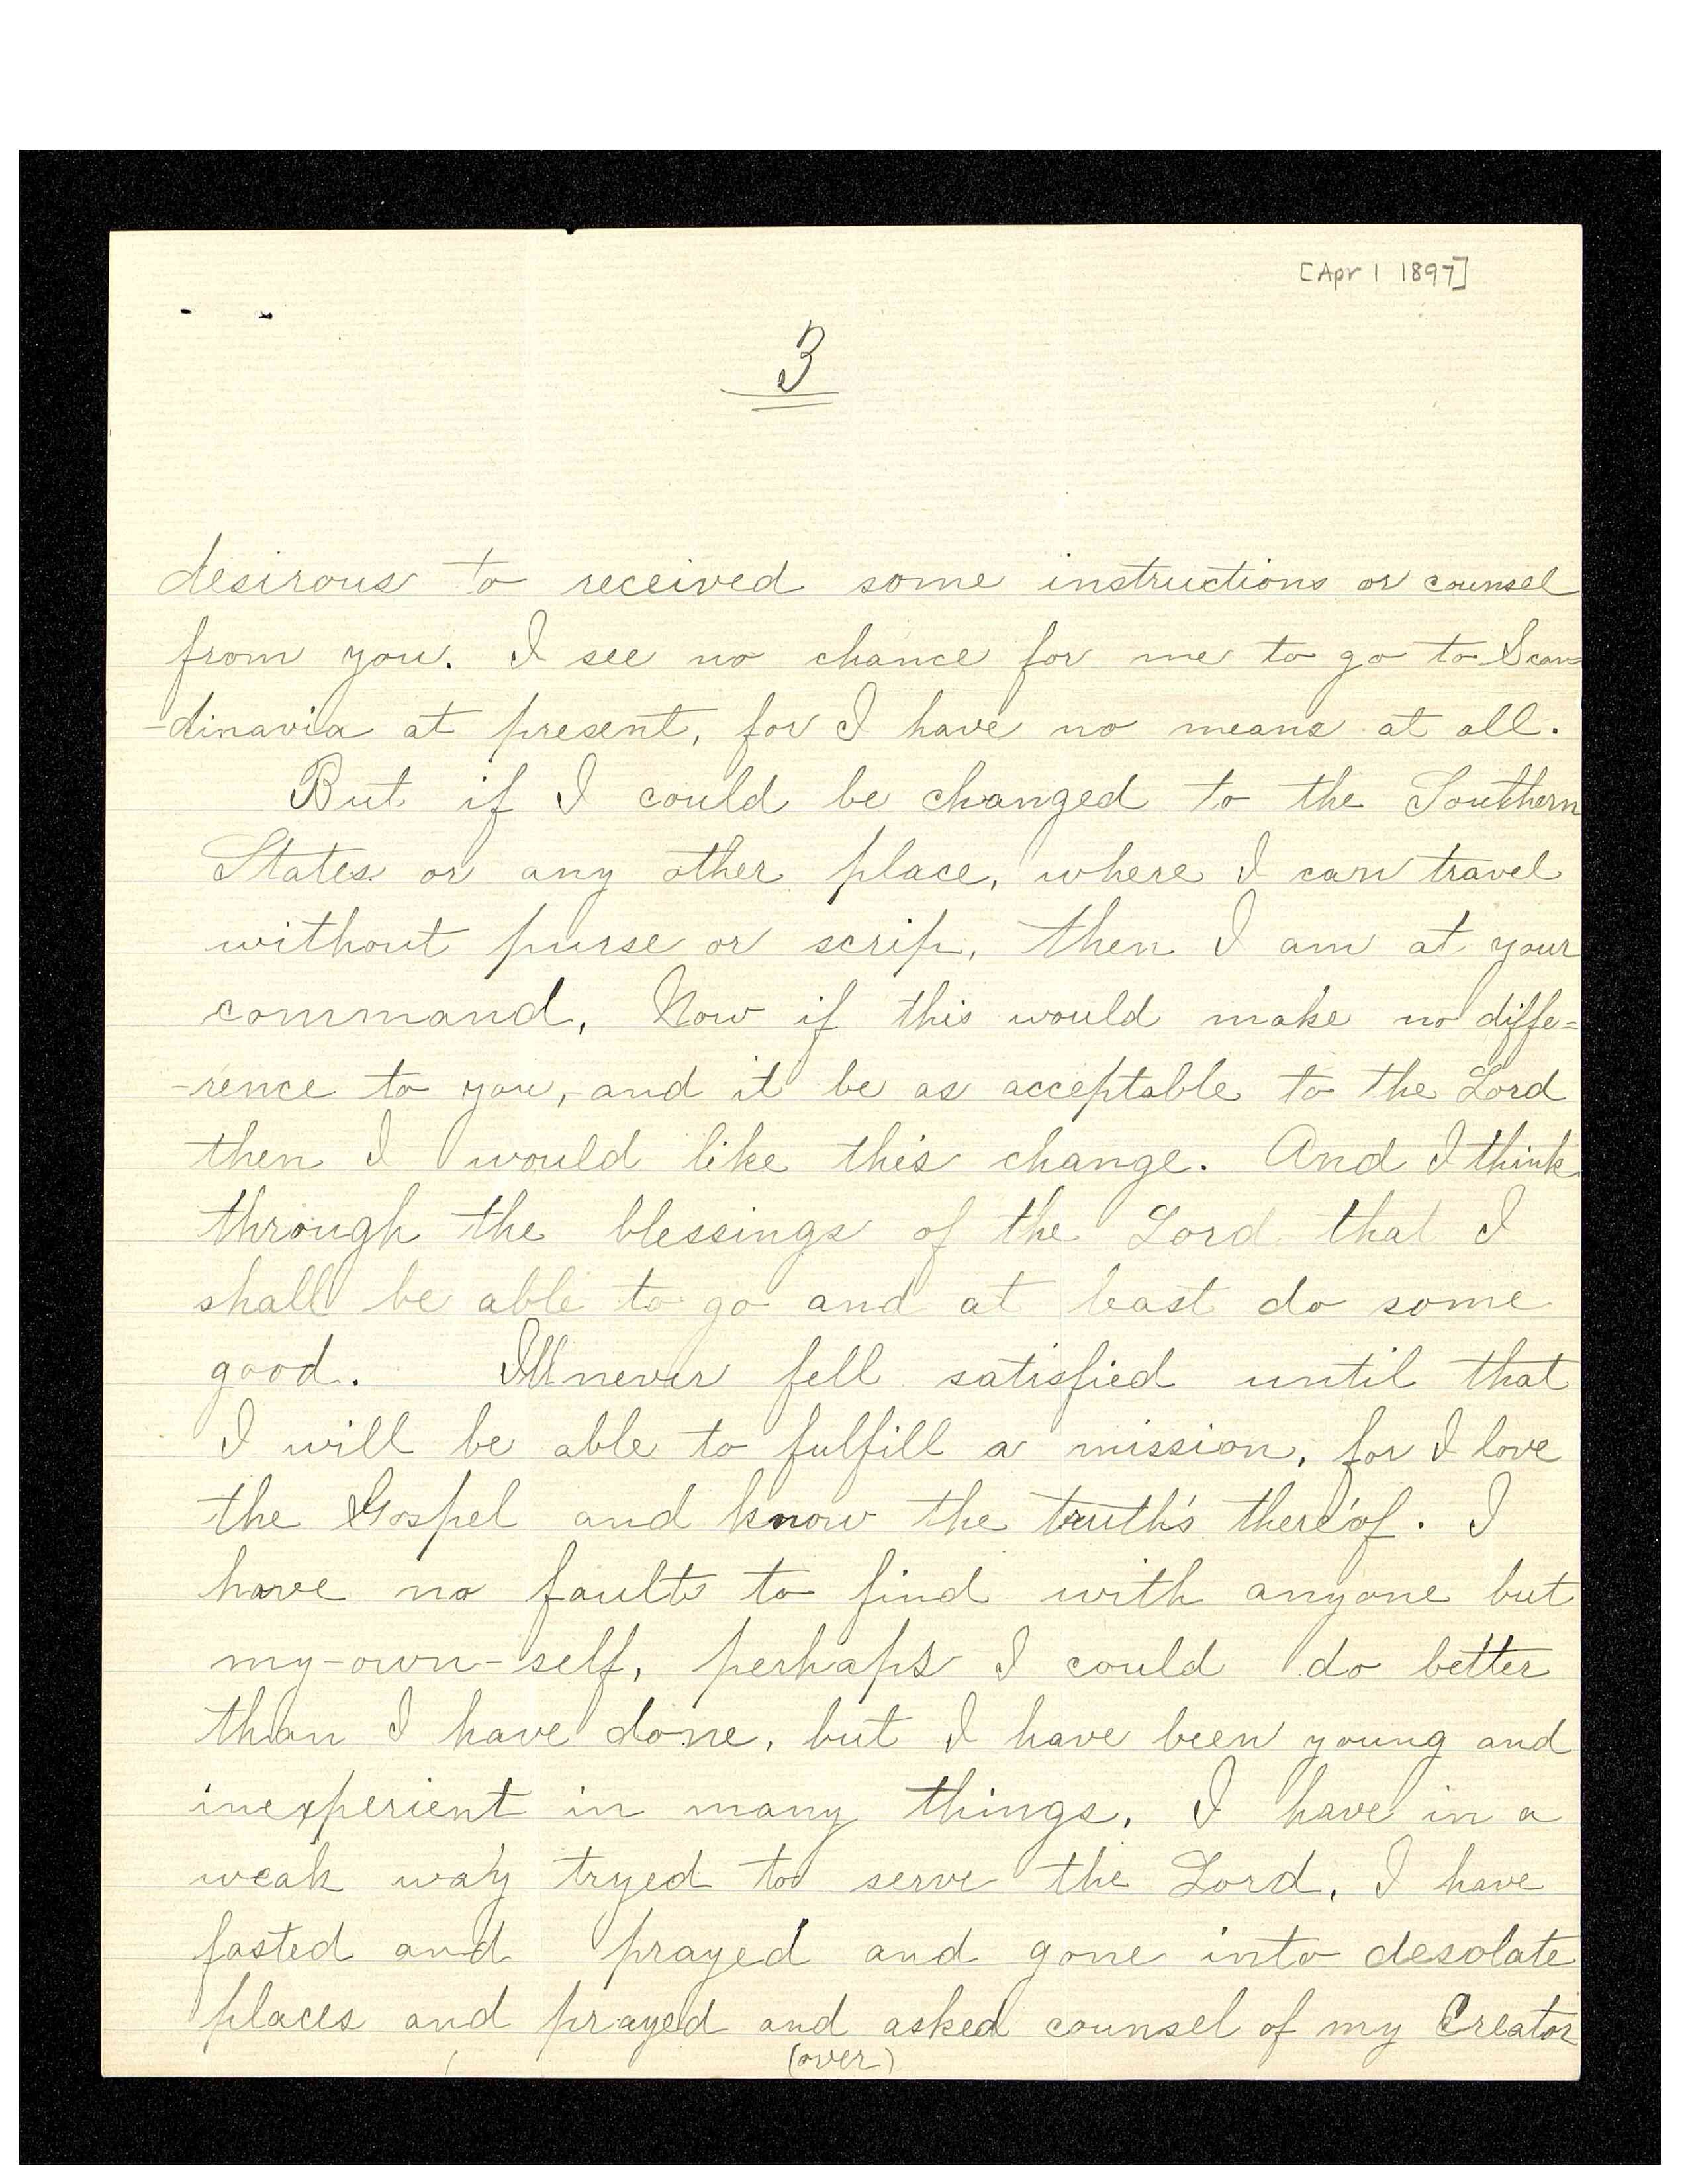 [Apr 1 1897]
3
desirous to received some instructions or counsel
from you. I see no chance for me to go to Scan=
-dinavia at present, for I have no means at all.
But if I could be changed to the Southern
States or any other place, where I can travel
without purse or scrip, then I am at your
command. Now if this would make no diffe=
-rence to you, and it be as acceptable to the Lord
then I would like this change. And I think
through the blessings of the Lord that I
shall be able to go and at least do some
good. Ill never fell satisfied until that
I will be able to fulfill a mission, for I love
the Gospel and know the truth's there'of. I
have no faults to find with anyone but
my-own-self, perhaps I could do better
than I have done, but I have been young and
inexperient in many things, I have in a
weak way tryed to serve the Lord, I have
fasted and prayed and gone into desolate
places and prayed and asked counsel of my Creator
(over)